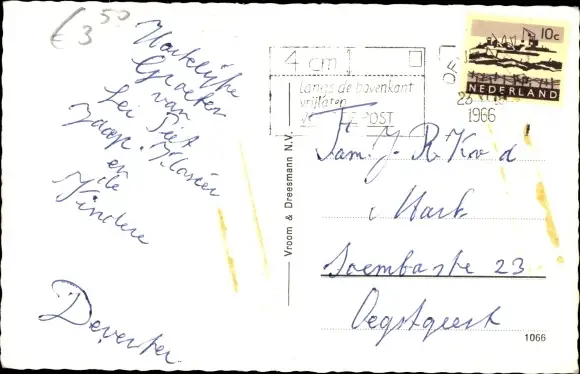 € 3 50
Hartelijke
Groeten
van
Lei Piet
Jaap. Klasien
en
de
Kindere
Deventer
4 cm
langs de bovenkant
vrijlaten
POST
1966
10c
NEDERLAND
Vroom & Dreesmann N.V.
Fam. J. R. Kro d
Mark
23
Oegstgeest
1066